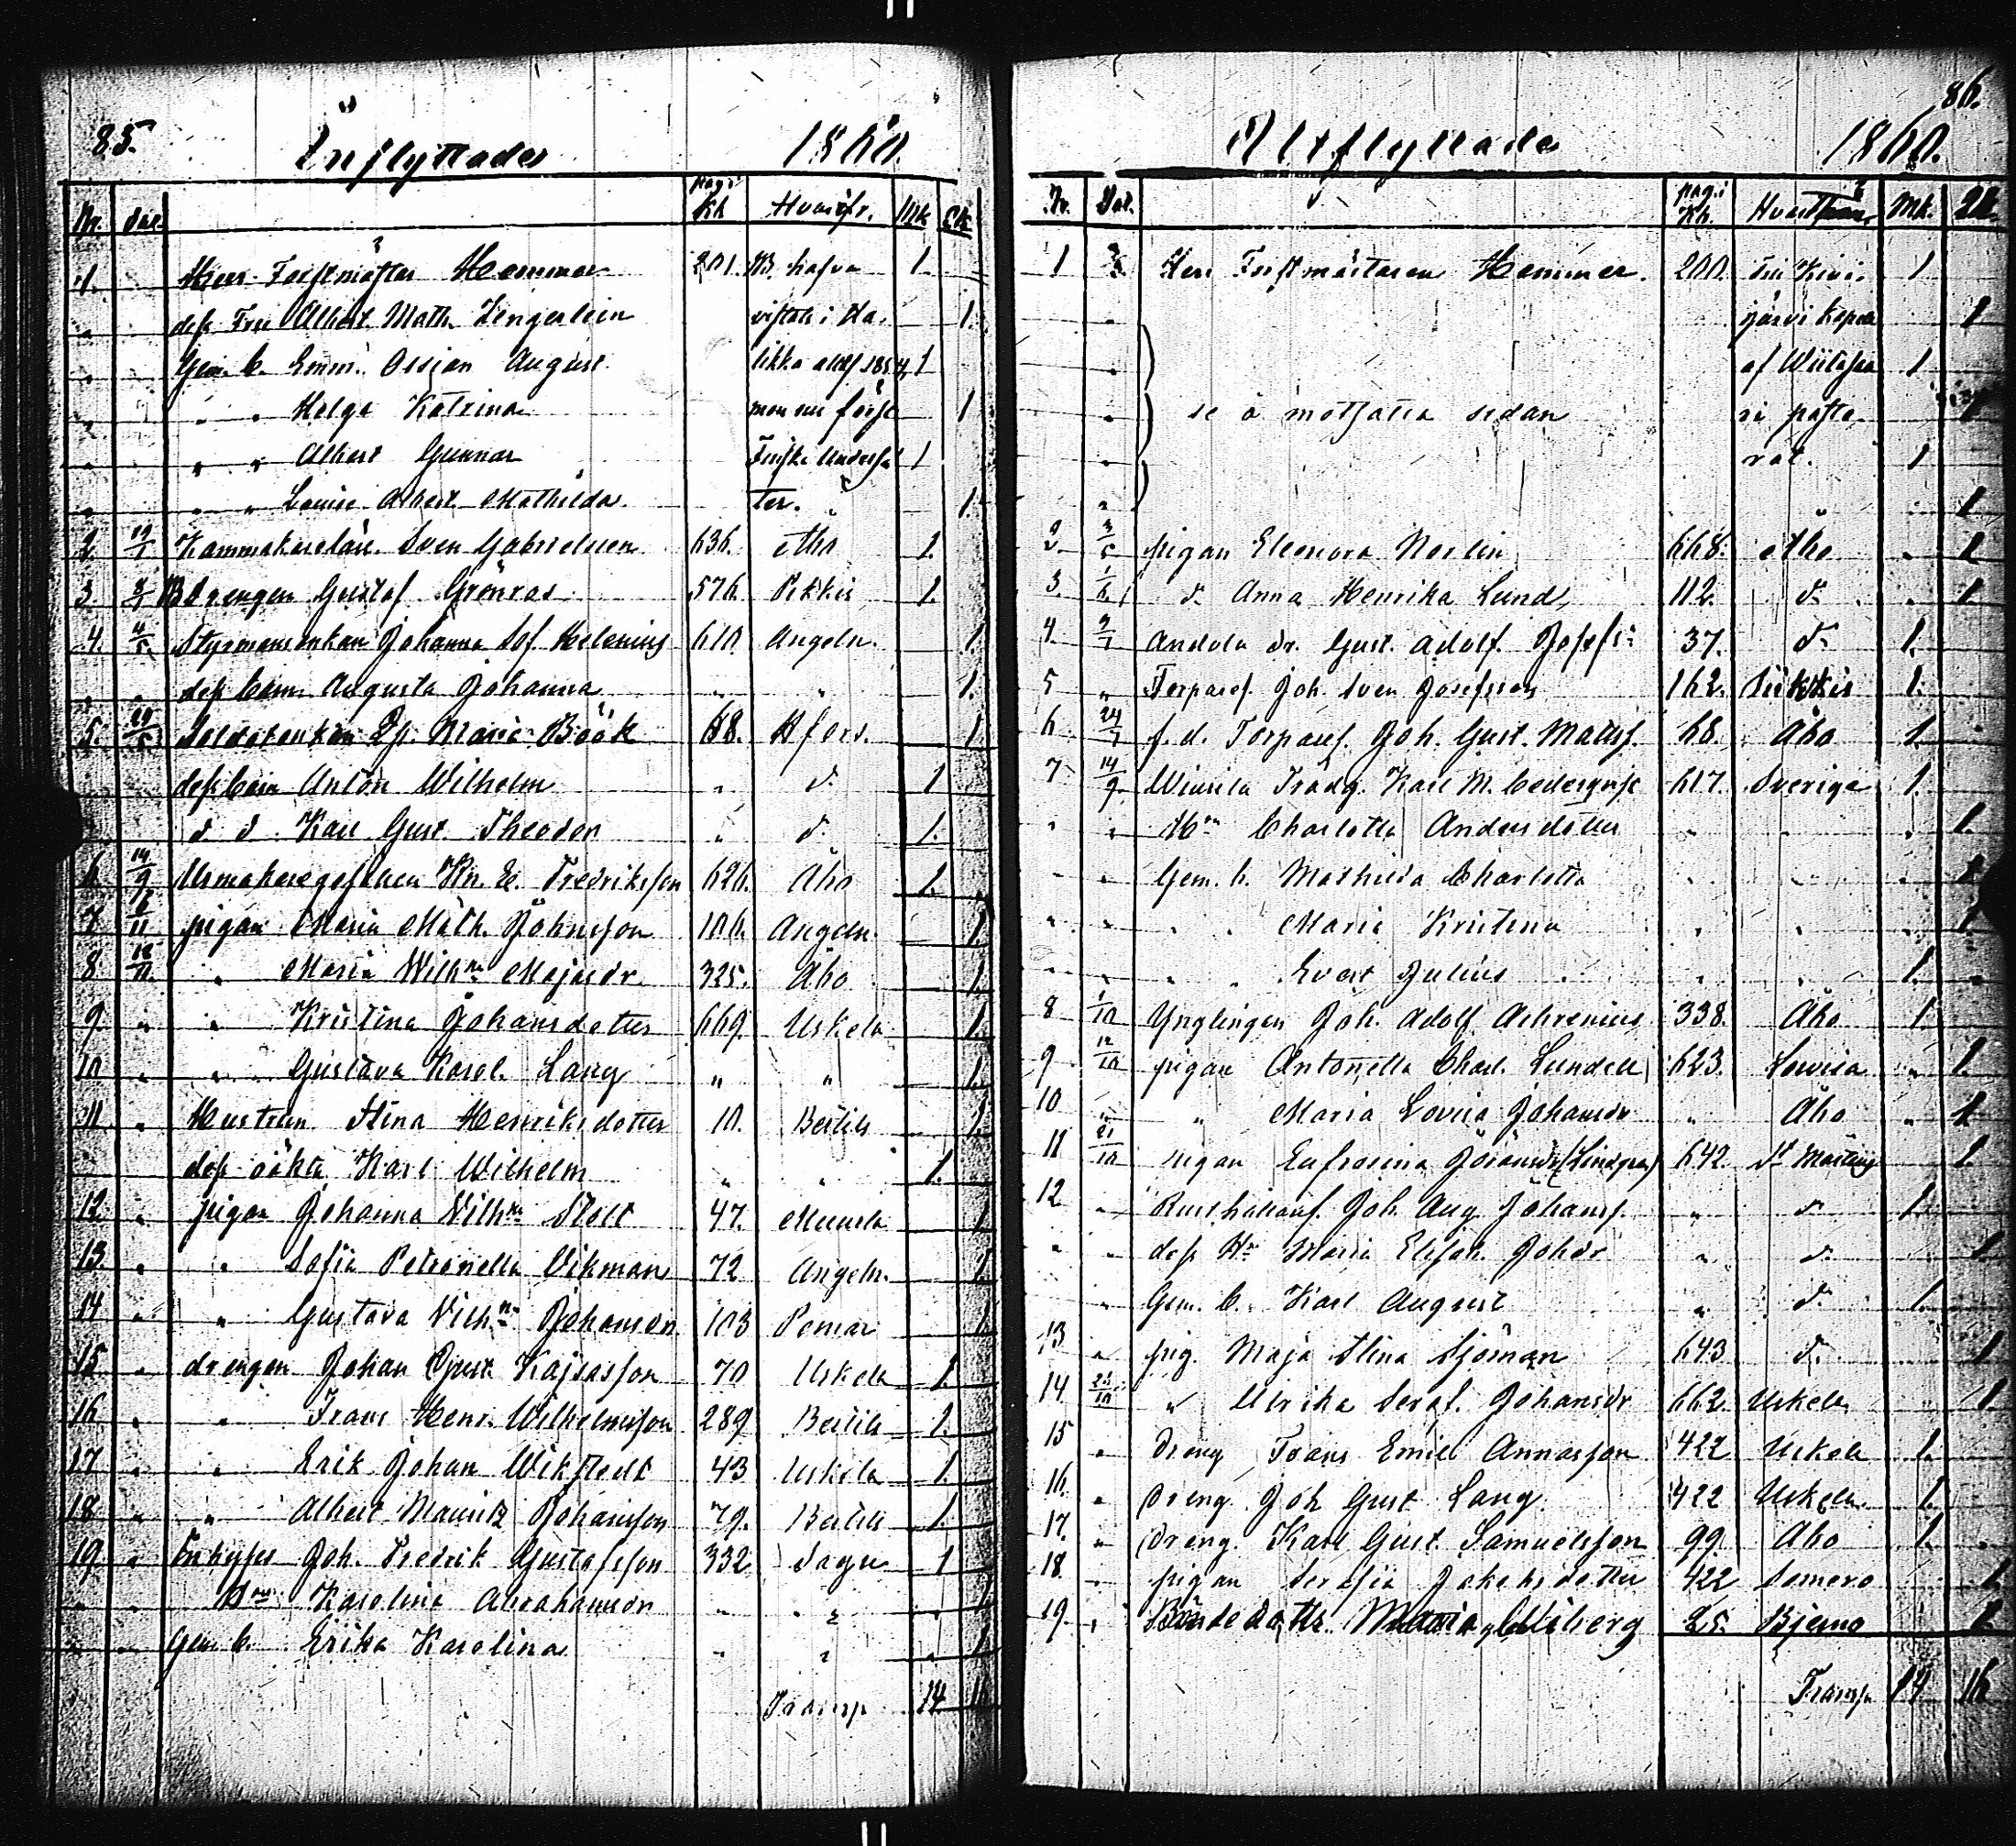 85.
Inflyttade 1860.
Nr. Dat. pag. i Kb. Hvarifr. Mk. Qk.
1. Herr Forstmäster Hammar 201. 1.
dess Fru Albert. Math. Zengerlein vistats i Ha- 1.
Gem. b. Emm. Ossian August 1
" " Helga Katrina 1
" " Albert Gunnar 1
" " Louise Albert. Mathilda ter. 1.
2. 19/1 Sven Gabrielsson 636. Åbo 1.
3 Gustaf Grönroos 576. Pikkis 1.
4. 4/5 Styrmansenkan Johanna Sof. Helenius 610. Angeln. 1.
dess barn Augusta Johanna " " 1.
5. 29/5 Soldatenkan Maria Böök 68. Hfors. 1.
dess barn Anton Wilhelm " d. 1
d d Karl Gust. Theodor " d. 1.
6. 14/9 Urmakaregesällen Kn. E. Fredriksson 626. Åbo 1.
7 6/11 pigan Maria Math. Johnsson 106. Angeln. 1.
8. " Maria Wilhna Majasdr. 325. Åbo 1.
9. " " Kristina Johansdotter 669. Uskela 1.
10 " " Gustava Karol. Lang " " 1.
11 " Hustrun Stina Henriksdotter 10. Bertils 1.
dess oäkta Karl Wilhelm " " 1.
12. " pigan Johanna Wilhna Stolt 47. Muurla 1
13. " " Sofia Petronella Vikman 72 Angeln. 1.
14 " " Gustava Vilhna Johansdr. 103 Pemar 1
15. " drengen Johan Gust. Kajsasson 70 Uskela 1.
16. " " Frans Henr. Wilhelmsson 289 Bertils 1.
17 " " Erik Johan Wikstedt 43 Uskela 1.
18. " " Albert Mauritz Johansson 79. Bertils 1.
19. " Joh. Fredrik Gustafsson 332 Sagu 1
" " Karolina Abrahamsdr " " 1
" " Gem. b. Erika Karolina " " 1
Transp 14 16
86.
Utflyttade 1860.
Nr. Dat. pag. i Kb. Mk. Qk.
1 Herr Forstmästaren Hammar. 200. till Kivi- 1
" järvi kapell 1
" af Wiitasaa- 1
" se å motsatta sidan ri pasto- 1
" rat. 1
" 1
2. 3/5 pigan Eleonora Norlin 668. Åbo " 1
3. 1/6 d. Anna Henrika Lund 112. d. " 1
4. Andola dr. Gust. Adolf Josefs: 37. d. 1.
5 " Torparef. Joh. Sven Josefsson 162. 1.
6 24/7 f. d. Torparef. Joh. Gust. Mattsf. 68. Åbo 1.
7 14/9 Wiurila Trädg. Karl M. Cederqvist 617. Sverige 1.
" " Hn Charlotta Andersdotter " " 1.
" " Gem. b. Mathilda Charlotta " " 1
" " " " Maria Kristina " " 1
" " " " Evert Julius " " 1.
8 1/10 Ynglingen Joh. Adolf Achrenius 338. Åbo 1.
9 12/10 pigan Antonella Charl. Lundell 623. Lovisa " 1.
10 " " Maria Lovisa Johansdr " Åbo " 1
11 21/10 pigan Eufrosina Göransdr (Lindgren) 642. St Mårtens 1.
12 " Rusthållaref. Joh. Aug. Johansf. " d. 1.
" " dess Hu Maria Elisab. Johdr " d. 1
" Gem. b. Karl August " d. 1.
13 " pig. Maja Stina Sjöman 643 d. 1
14 " Ulrika Seraf. Johansdr 662 Uskela 1.
15 " Dreng Frans Emil Annasson 422 Uskela 1.
16. " Dreng Joh Gust. Lang 422 Uskela 1.
17. " Dreng. Karl Gust. Samuelsson 99. Åbo 1.
18. " pigan Serafia Jakobsdotter 422 Somero 1
19. " Bondedottr. Maria 25. Bjerno 1.
Transp 14 16